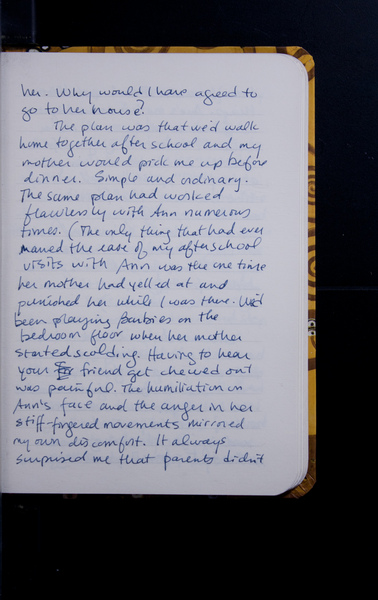 her. Why would I have agreed to
go to her house?
The plan was that we'd walk
home together after school and my
mother would pick me up before
dinner. Simple and ordinary.
The same plan had worked
flawlessly with Ann numerous
times. (The only thing that had ever
marred the ease of my after school
visits with Ann was the one time
her mother had yelled at and
punished her while I was there. We'd
been playing Barbies on the
bedroom floor when her mother
started scolding. Having to hear
your friend get chewed out
was painful. The humiliation on
Ann's face and the anger in her
stiff-fingered movements mirrored
my own discomfort. It always
surprised me that parents didn't